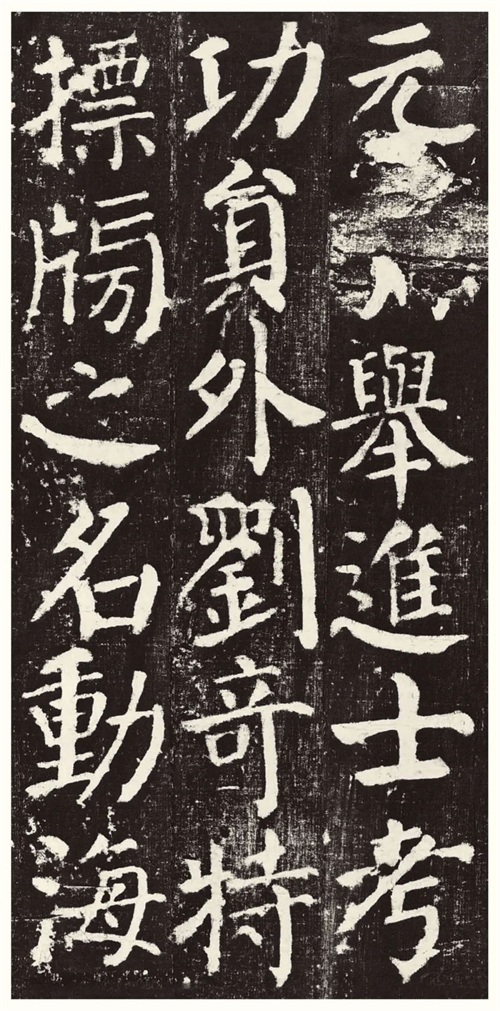 元舉進士考
功貟外劉竒特
摽牓之名動海